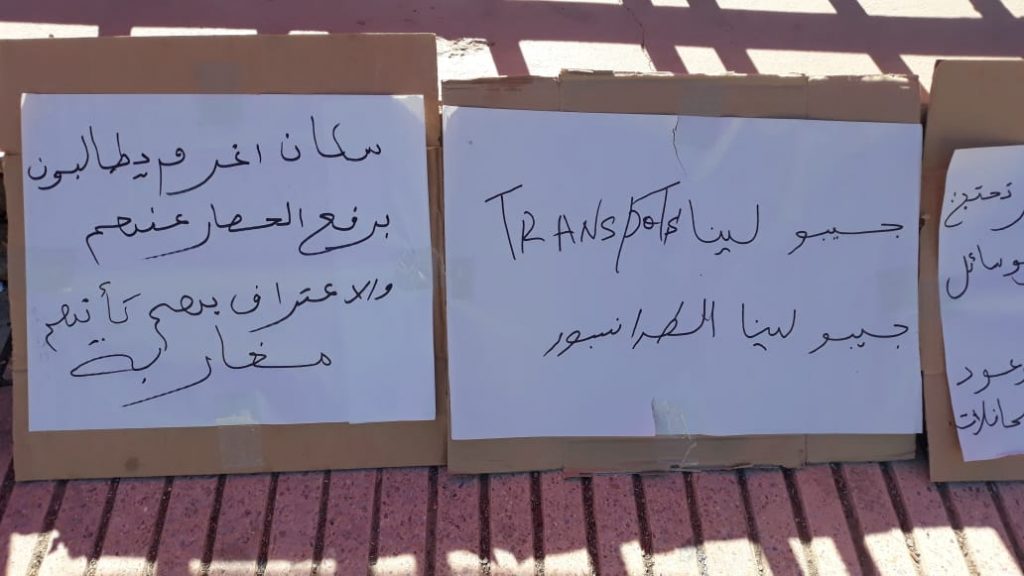 سكان اغرم يطالبون
برفع الحصار عنهم
والاعتراف بهم كأنهم
مغاربة
جيبو لينا TRANSpoTs
جيبو لينا الطرانسبور
تحتج
وسائل
وعود
حافلات